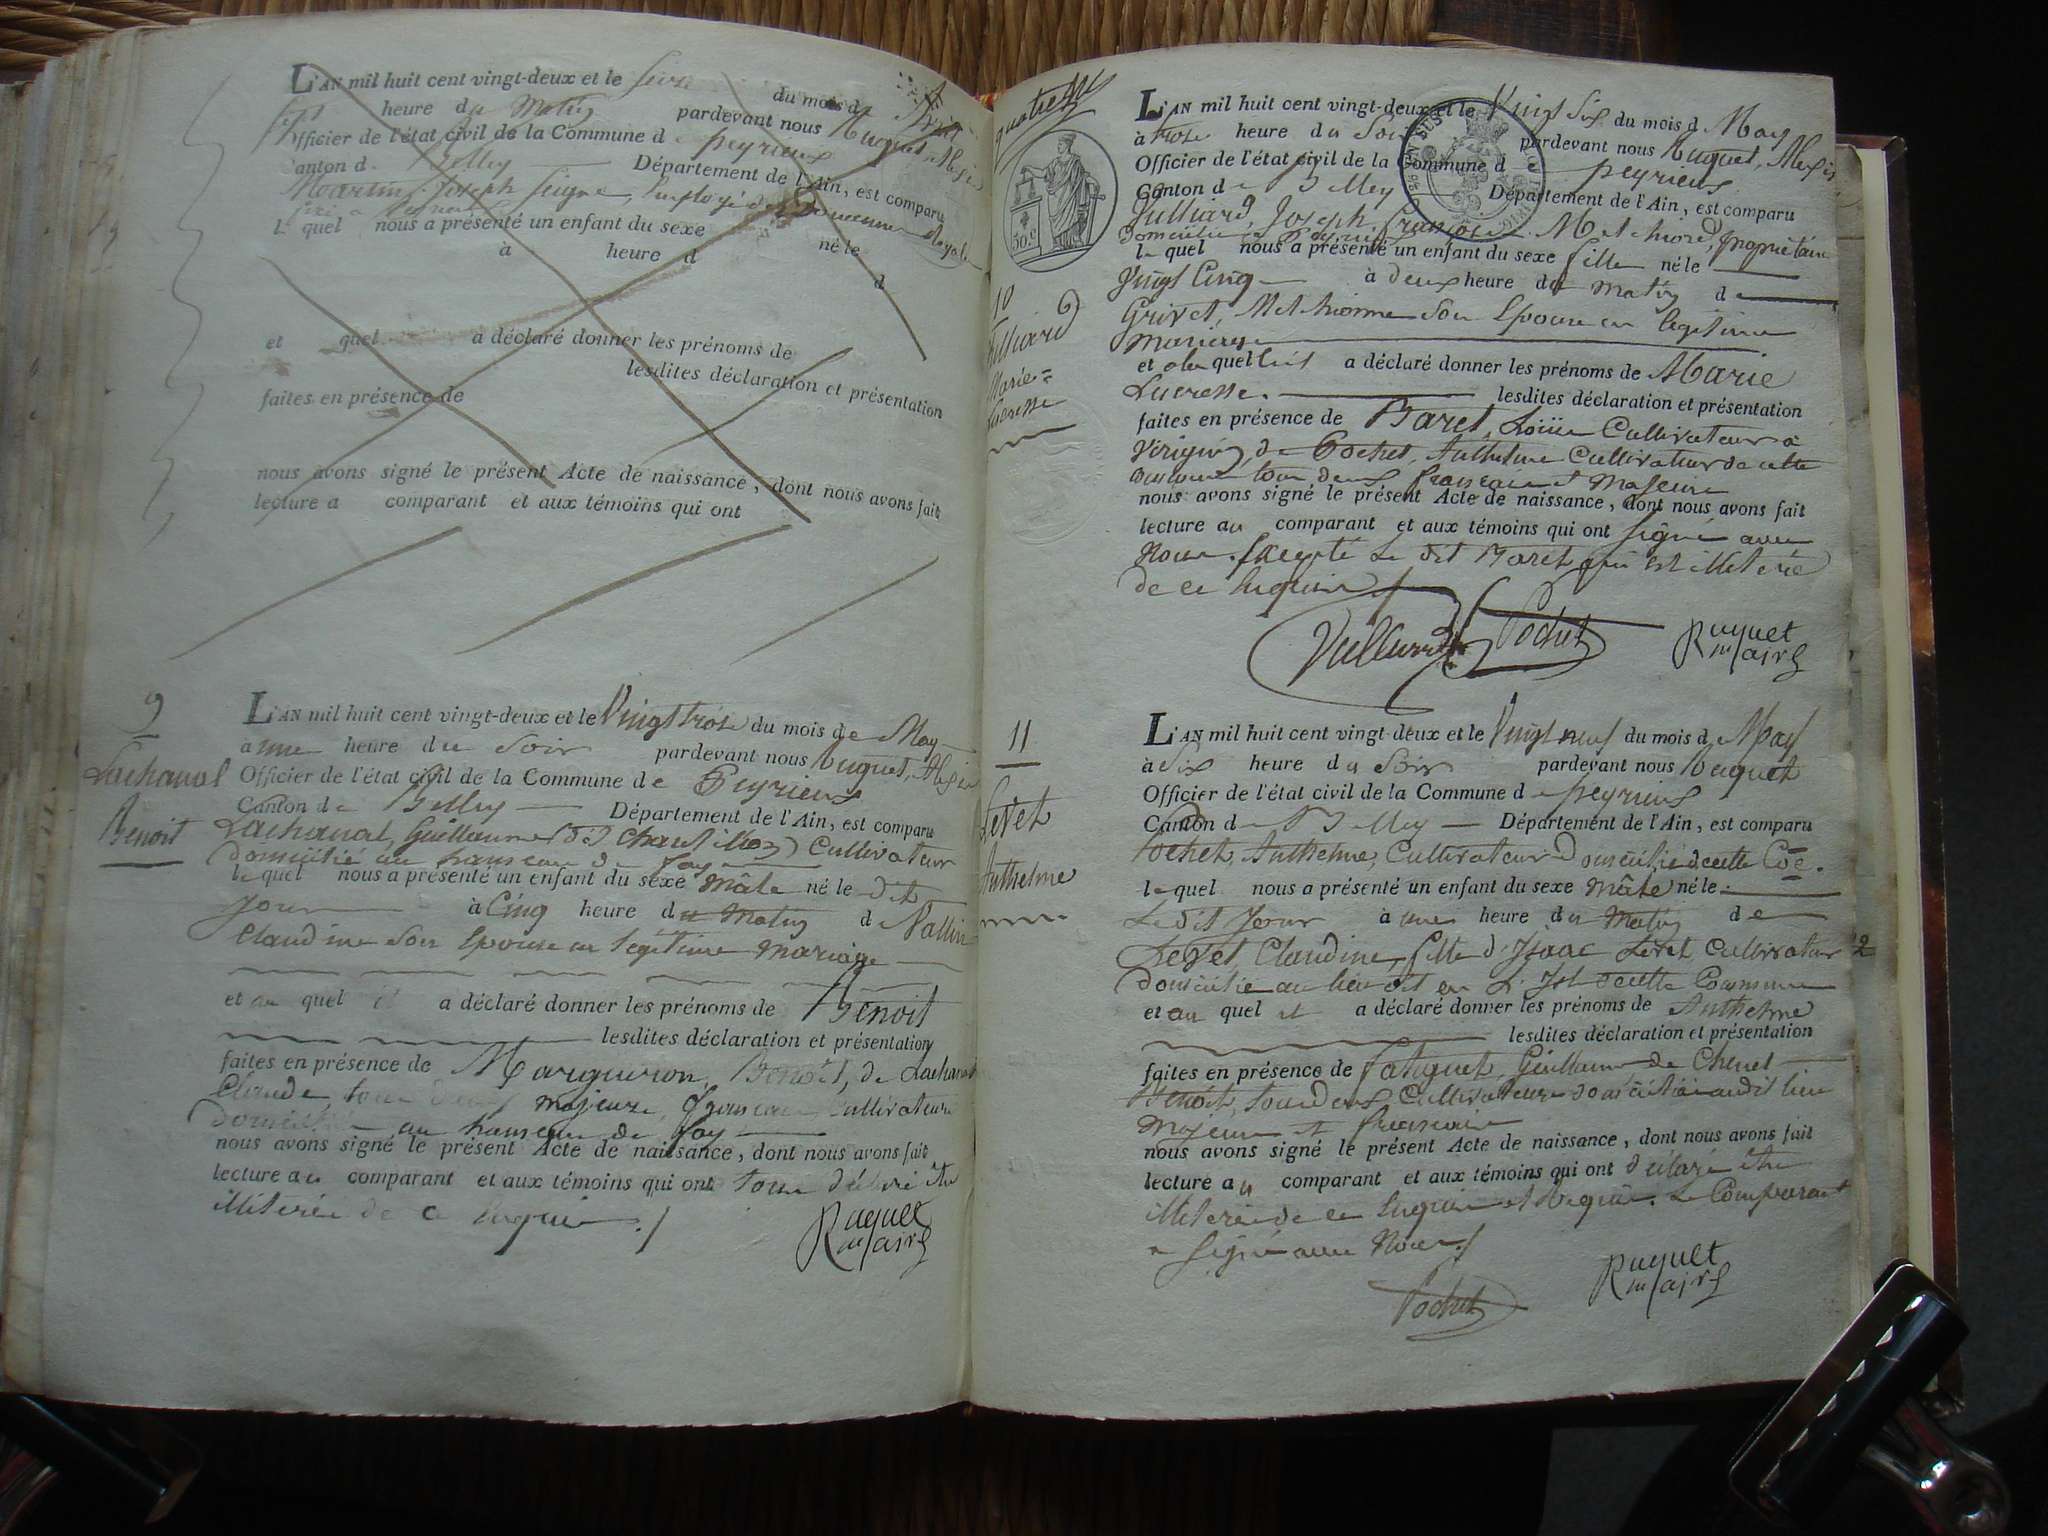 L'AN mil huit cent vingt-deux et le
du mois d
heure du Matin
pardevant nous Ruquet, Alexis
Officier de l'état civil de la Commune de peyrieux
Canton d Belley
Département de l'Ain, est comparu
Martin, Joseph
L quel nous a présenté un enfant du sexe né le
à heure d
d
et quel a déclaré donner les prénoms de
lesdites déclaration et présentation
faites en présence de
nous avons signé le présent Acte de naissance, dont nous avons fait
lecture a comparant et aux témoins qui ont
9
Lachanal
Benoit
L'AN mil huit cent vingt-deux et le Vingt trois du mois de May
à une heure du Soir pardevant nous Ruquet, Alexis
Officier de l'état civil de la Commune de Peyrieux
Canton de Belley Département de l'Ain, est comparu
Lachanal, Guillaume (dit Chantillon) Cultivateur
domicilié au hameau de fay
lequel nous a présenté un enfant du sexe mâle né le dit
jour à Cinq heure du Matin de Vallin
Claudine son Epouse en légitime mariage
et au quel il a déclaré donner les prénoms de Benoit
lesdites déclaration et présentation
faites en présence de Margueron, Benoit, de Lachanal
Claude tous deux majeurs, français Cultivateurs
domiciliés au hameau de fay
nous avons signé le présent Acte de naissance, dont nous avons fait
lecture au comparant et aux témoins qui ont tous déclaré être
illiterés de ce Requis ./
Ruquet
maire
quatre
30.c
10
Julliard
Marie=
Lucresse
L'AN mil huit cent vingt-deux et le Vingt Six du mois d May
à trois heure du Soir pardevant nous Ruquet, Alexis
Officier de l'état civil de la Commune d peyrieux
Canton de Belley Département de l'Ain, est comparu
Julliard, Joseph, françois Melchiord, propriétaire
domicilié a Peyrieux
lequel nous a présenté un enfant du sexe fille né le
Vingt Cinq à deux heure du matin de
Grivet, Melchionne Son Epouse en legitime
mariage
et a la quelle il a déclaré donner les prénoms de Marie
Lucresse. lesdites déclaration et présentation
faites en présence de Baret, Loüis Cultivateur à
Virignin, de Pochet, Anthelme Cultivateur de cette
commune tous deux français et majeurs
nous avons signé le présent Acte de naissance, dont nous avons fait
lecture au comparant et aux témoins qui ont signé avec
Nous. Excepté Le dit Baret qui est illiteré
de ce Requis ./
Pochet
Ruquet
maire
11
Levet
Anthelme
L'AN mil huit cent vingt-deux et le Vingt neuf du mois d May
à Six heure du Soir pardevant nous Ruquet
Officier de l'état civil de la Commune de peyrieux
Canton de Belley Département de l'Ain, est comparu
Pochet, Anthelme, Cultivateur domicilié de cette Coe.
lequel nous a présenté un enfant du sexe mâle né le
Le dit Jour à une heure du Matin de
Levet, Claudine, fille d'Isaac Levet Cultivateur
domicilié au lieu dit en de cette Commune
et au quel il a déclaré donner les prénoms de Anthelme
lesdites déclaration et présentation
faites en présence de Guillaume de Chenet
Benoit, tous deux Cultivateurs domiciliés audit lieu
Majeurs et français
nous avons signé le présent Acte de naissance, dont nous avons fait
lecture au comparant et aux témoins qui ont déclaré être
illiterés de ce Enquis et Requis. Le Comparant
a Signé avec Nous ./
Pochet
Ruquet
maire